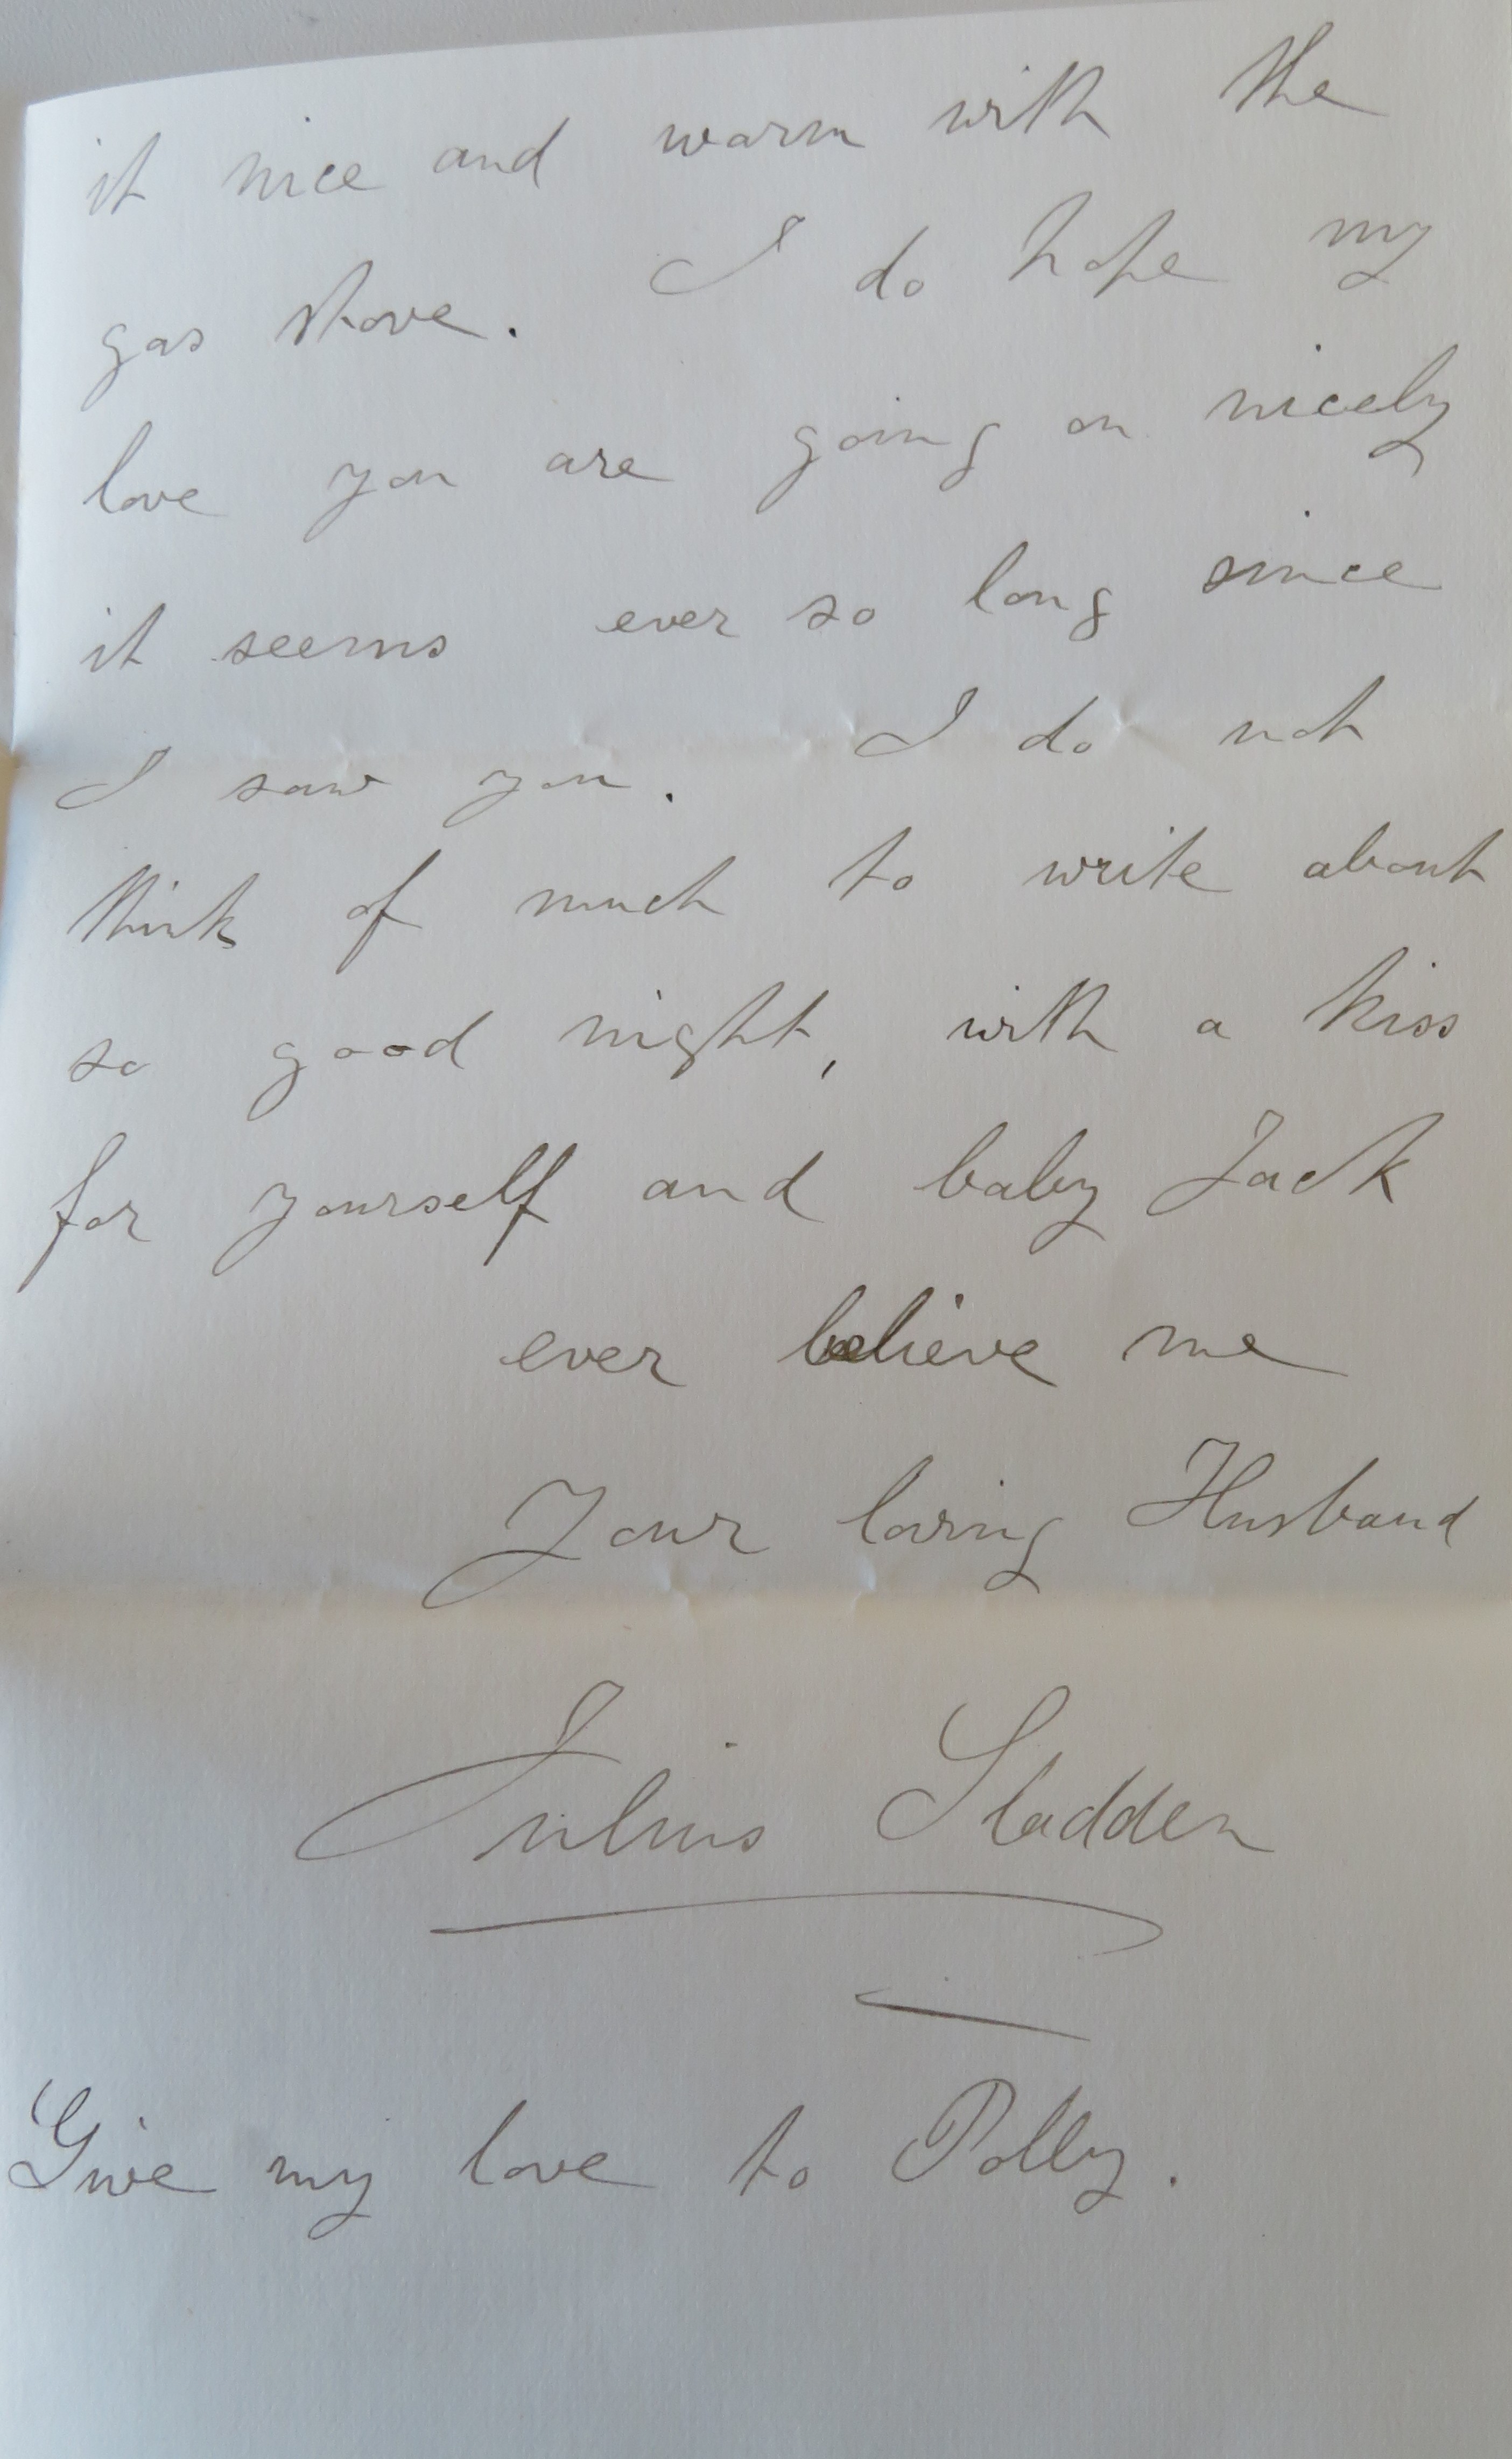 it nice and warm with the
gas stove. I do hope my
love you are going on nicely
it seems ever so long since
I saw you. I do not
think of much to write about
so good night, with a kiss
for yourself and baby Jack
ever believe me
Your loving Husband
Julius Sladden
Give my love to Polly.